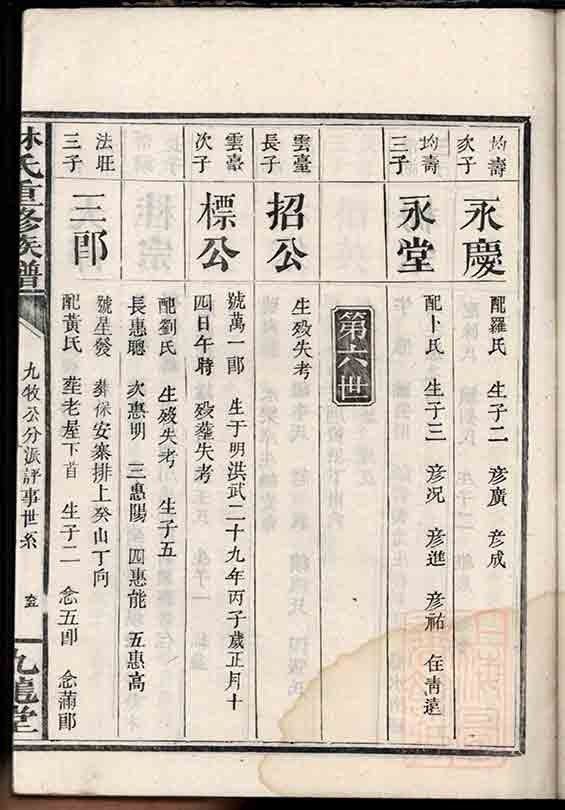 均壽
次子
永慶
配羅氏 生子二 彦廣 彦成
均壽
三子
永堂
配卜氏 生子三 彦况 彦進 彦祐 住青遠
第六世
雲臺
長子
招公
生殁失考
雲臺
次子
標公
號萬一郎 生于明洪武二十九年丙子歲正月十
四日午時 殁塟失考
配劉氏 生殁失考 生子五
長惠聰 次惠明 三惠陽 四惠能 五惠高
法旺
三子
三郎
號星發 葬保安寨排上癸山丁向
配黃氏 塟老屋下首 生子二 念五郎 念滿郎
林氏重修族譜
九牧公分派評事世系
九龍堂